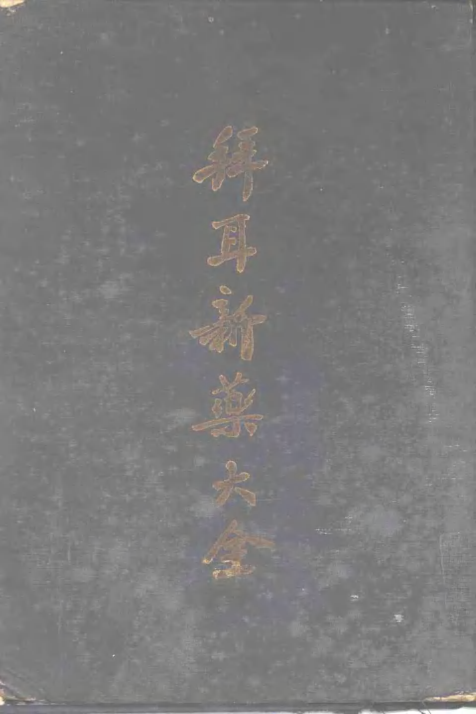 拜耳新藥大全